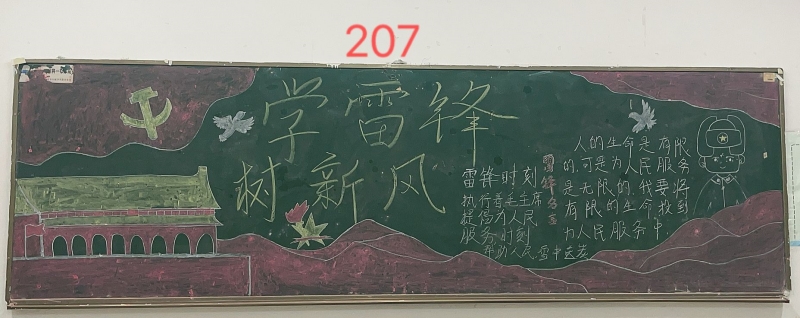 207
学雷锋
树新风
雷锋名言
雷锋时刻
执行着毛主席
提倡为人民
服务时刻
帮助人民雪中送炭
人的生命是有限
的可是为人民服务
是无限的我要将
有限的生命放到
为人民服务中